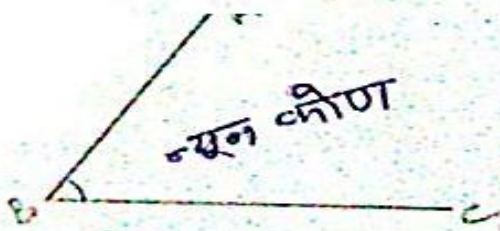 न्यून कोण
B
C